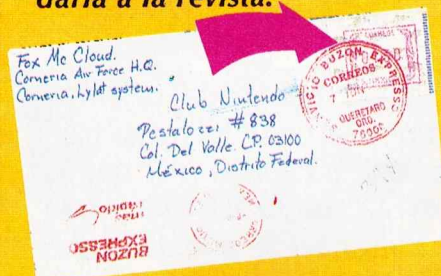 darla a la revista.
Fox Mc Cloud.
Corneria Air Force H.Q.
Corneria, Lylat system.
Club Nintendo
Pestalozzi #838
Col. Del Valle. C.P. 03100
México, Distrito Federal.
SERVICIO BUZON EXPRESSO
CORREOS
7
QUERETARO
QRO.
76000
BUZON
EXPRESSO